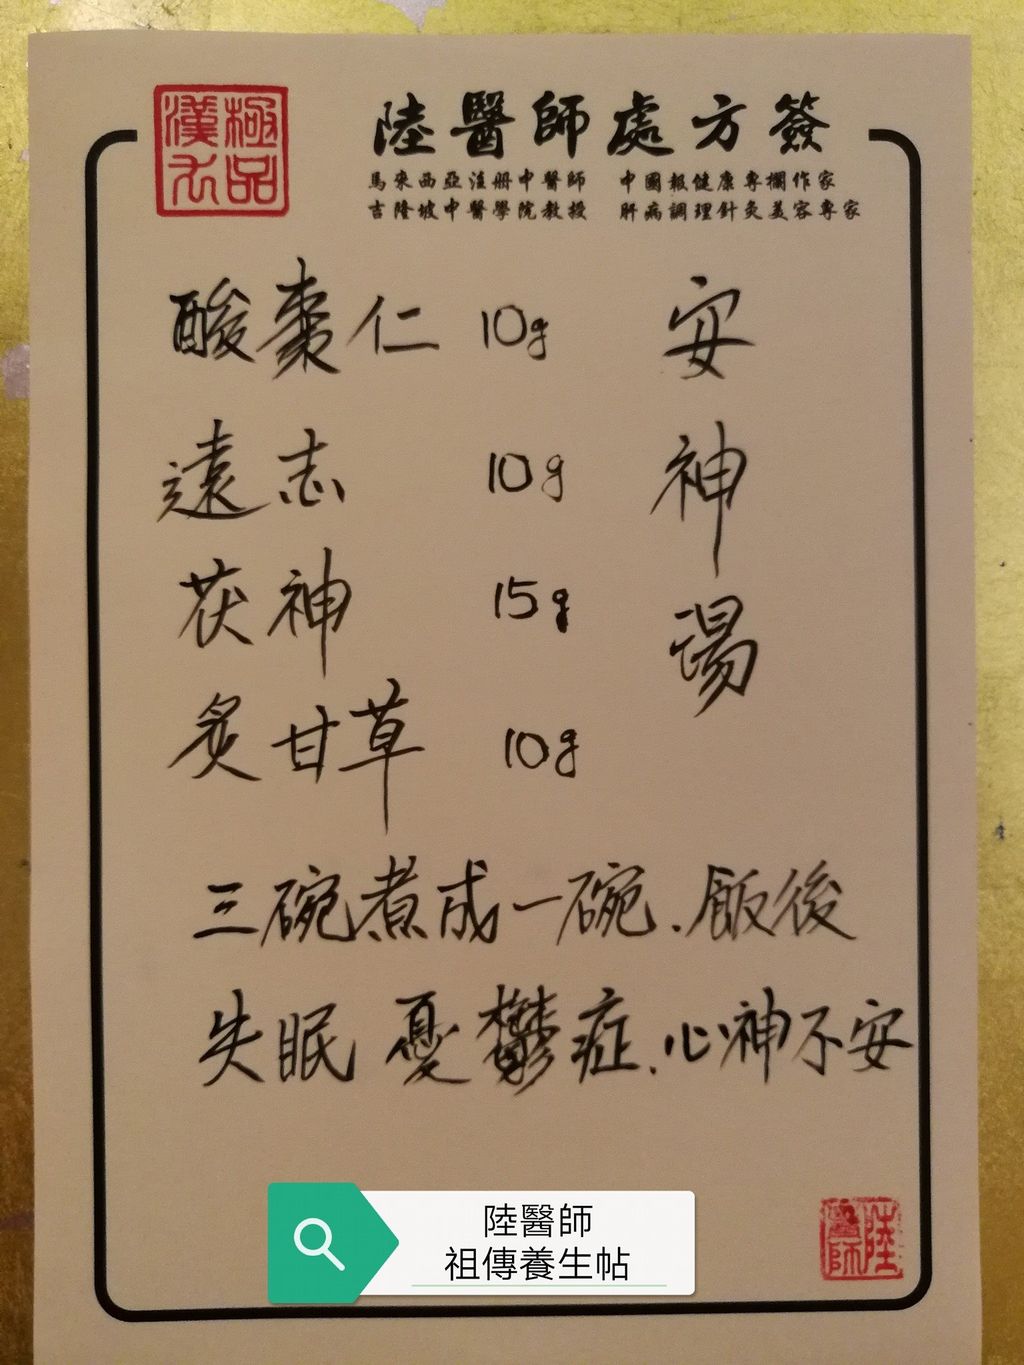 極品
漢方
陸醫師處方簽
馬來西亞注冊中醫師 中國報健康專欄作家
吉隆坡中醫學院教授 肝病調理針灸美容專家
安神湯
酸棗仁 10g
遠志 10g
茯神 15g
炙甘草 10g
三碗煮成一碗.飯後
失眠 憂鬱症.心神不安
陸醫師
陸醫師
祖傳養生帖